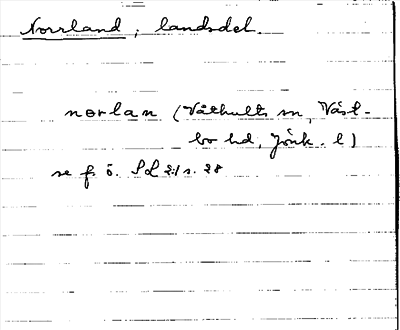 Norrland, landsdel.
norlan (Våthults sn, Väst-
bo hd, Jönk. l)
se f. ö. SL 21 s. 28